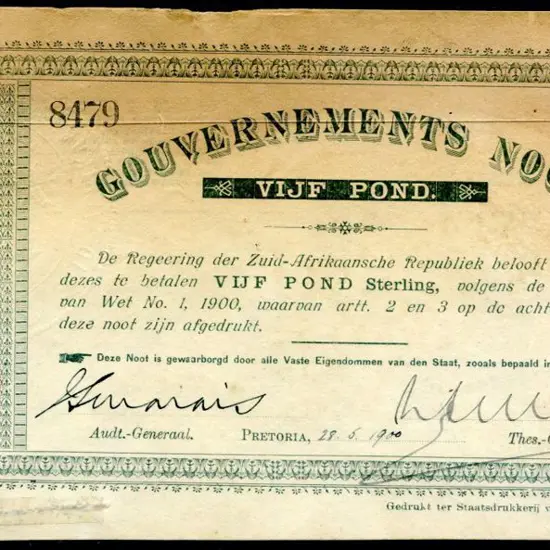 8479
GOUVERNEMENTS NOO
VIJF POND.
De Regeering der Zuid-Afrikaansche Republiek belooft
dezes te betalen VIJF POND Sterling, volgens de
van Wet No. 1, 1900, waarvan artt. 2 en 3 op de acht
deze noot zijn afgedrukt.
Deze Noot is gewaarborgd door alle Vaste Eigendommen van den Staat, zooals bepaald in
Audt.-Generaal. PRETORIA, 28.5.1900 Thes.-G
Gedrukt ter Staatsdrukkerij v